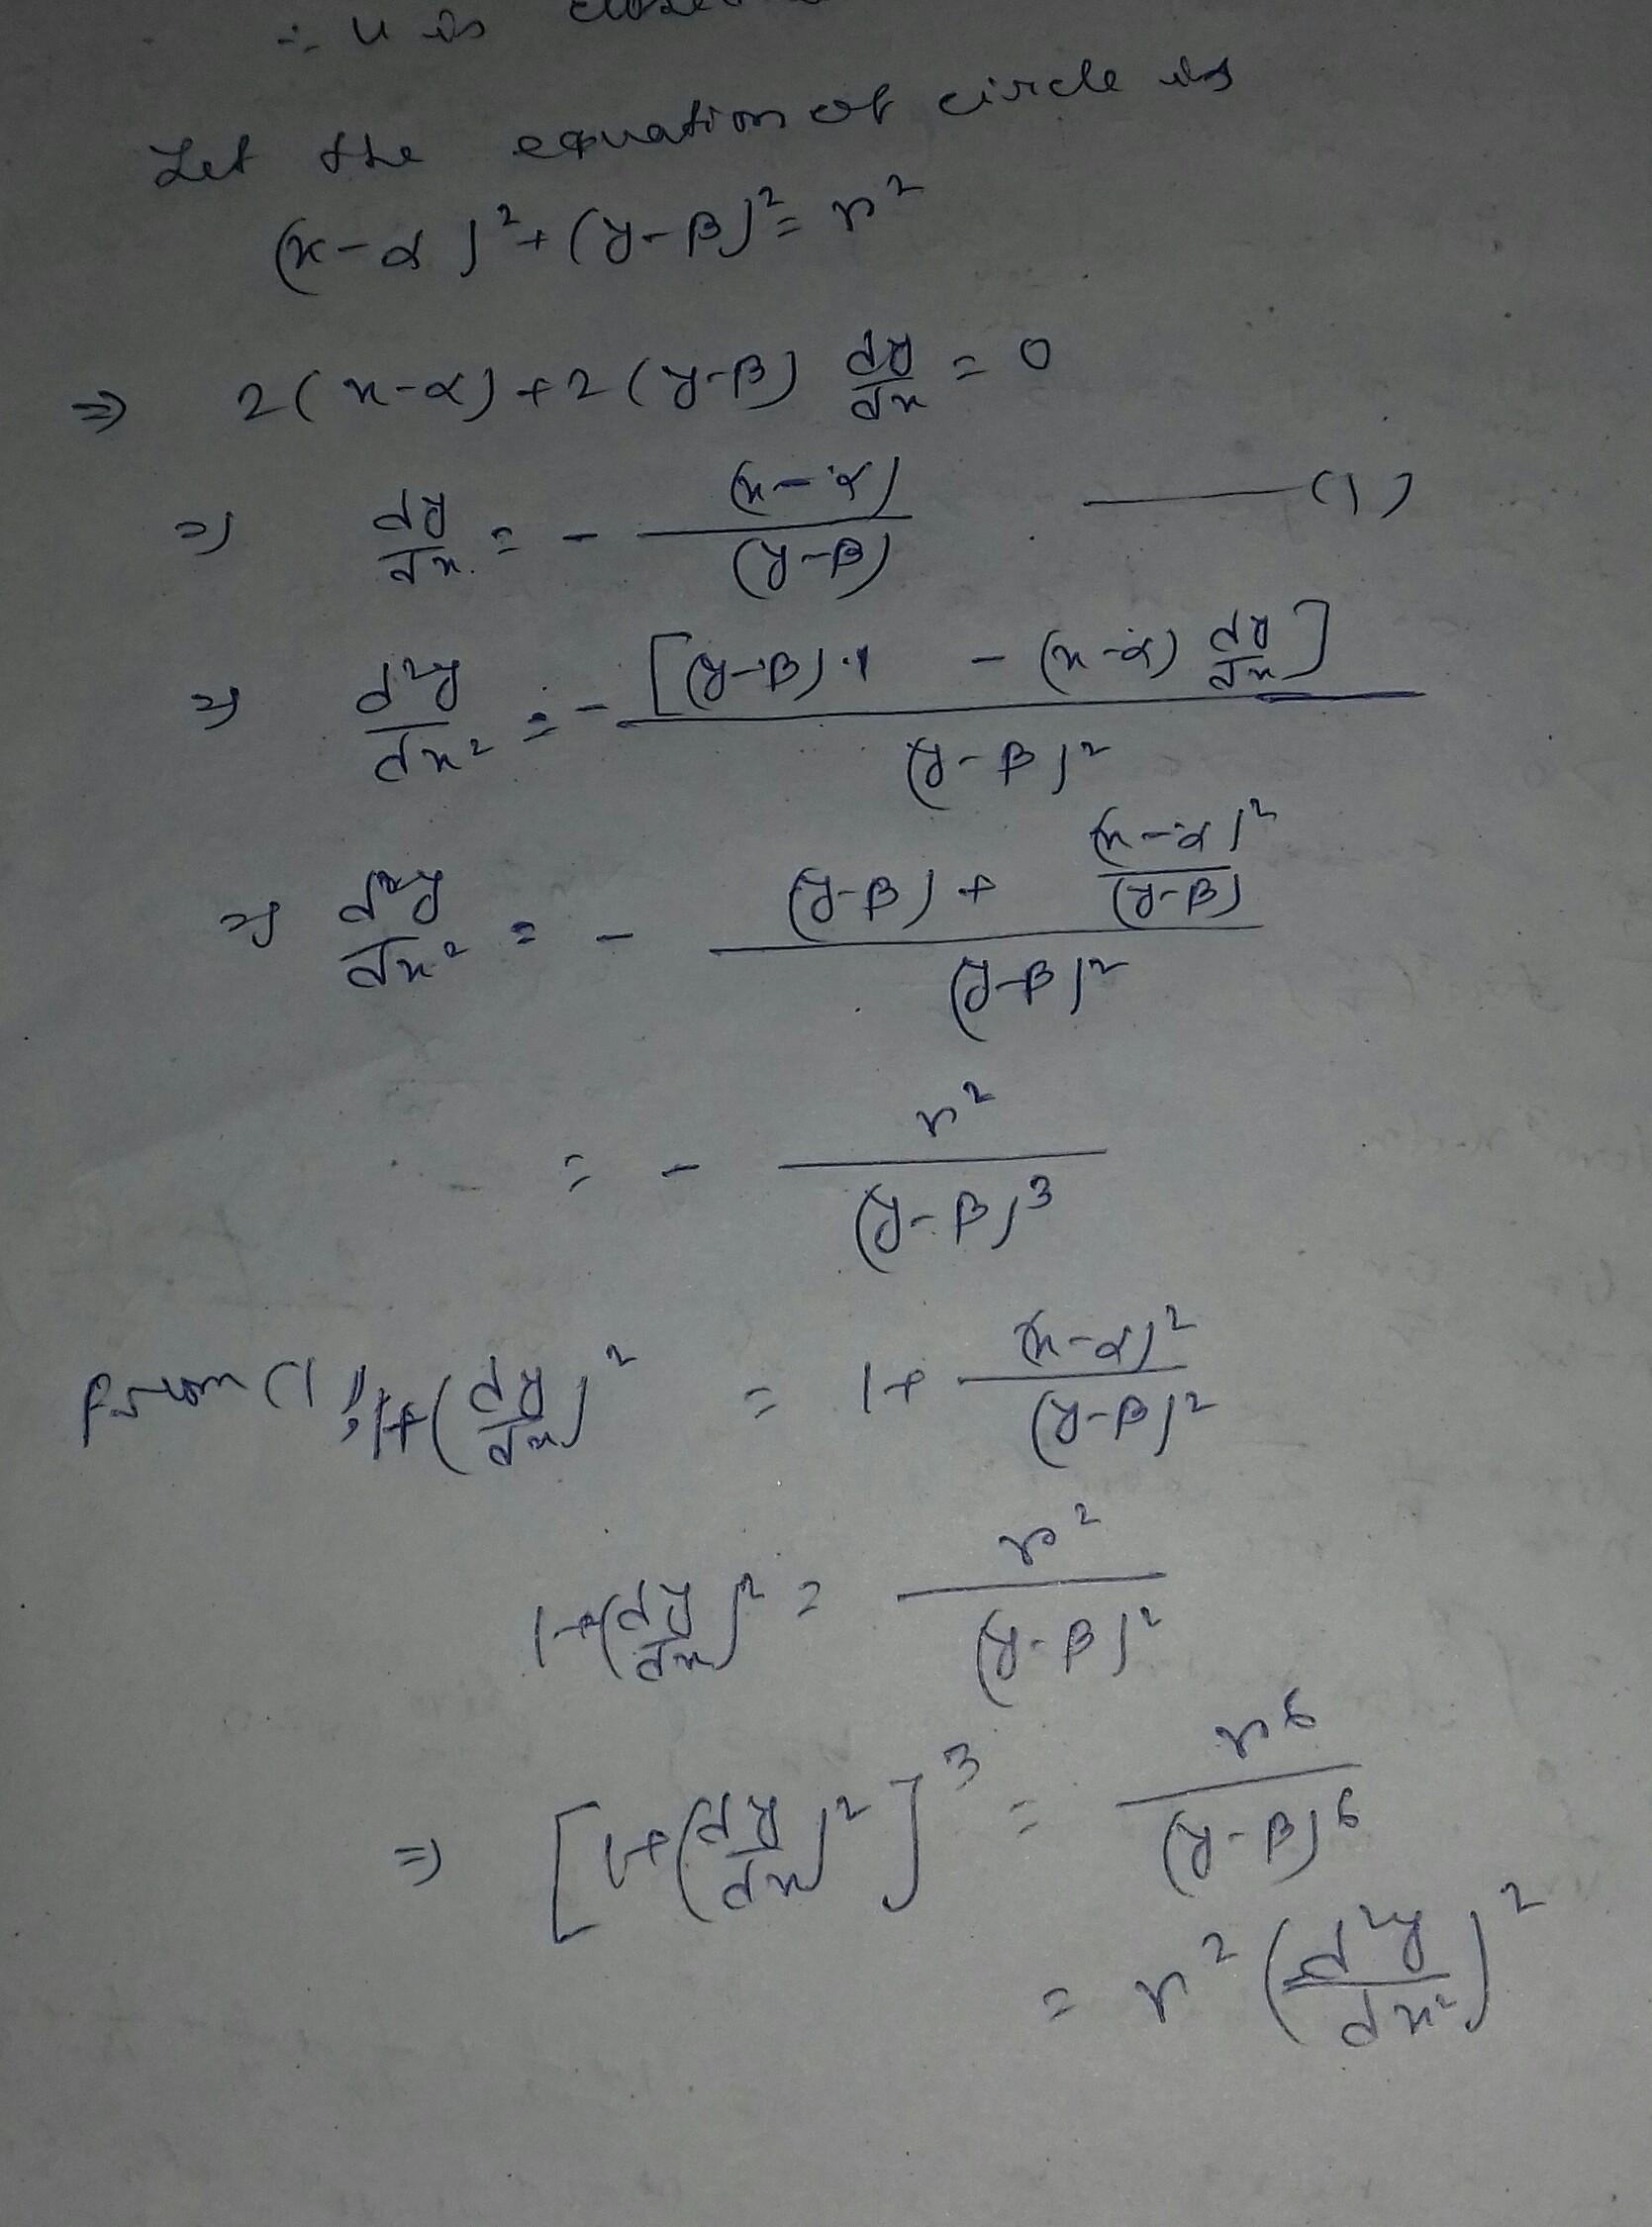 ∴ u is
Let the equation of circle is
(x-α)²+(y-β)²=r²
⇒ 2(x-α)+2(y-β) dy/dx = 0
⇒ dy/dx = - (x-α)/(y-β) ——(1)
⇒ d²y/dx² = - [(y-β)·1 - (x-α) dy/dx]/(y-β)²
⇒ d²y/dx² = - ((y-β) + (x-α)²/(y-β))/(y-β)²
= - r²/(y-β)³
From (1), 1+(dy/dx)² = 1+ (x-α)²/(y-β)²
1+(dy/dx)² = r²/(y-β)²
⇒ [1+(dy/dx)²]³ = r⁶/(y-β)⁶
= r² (d²y/dx²)²